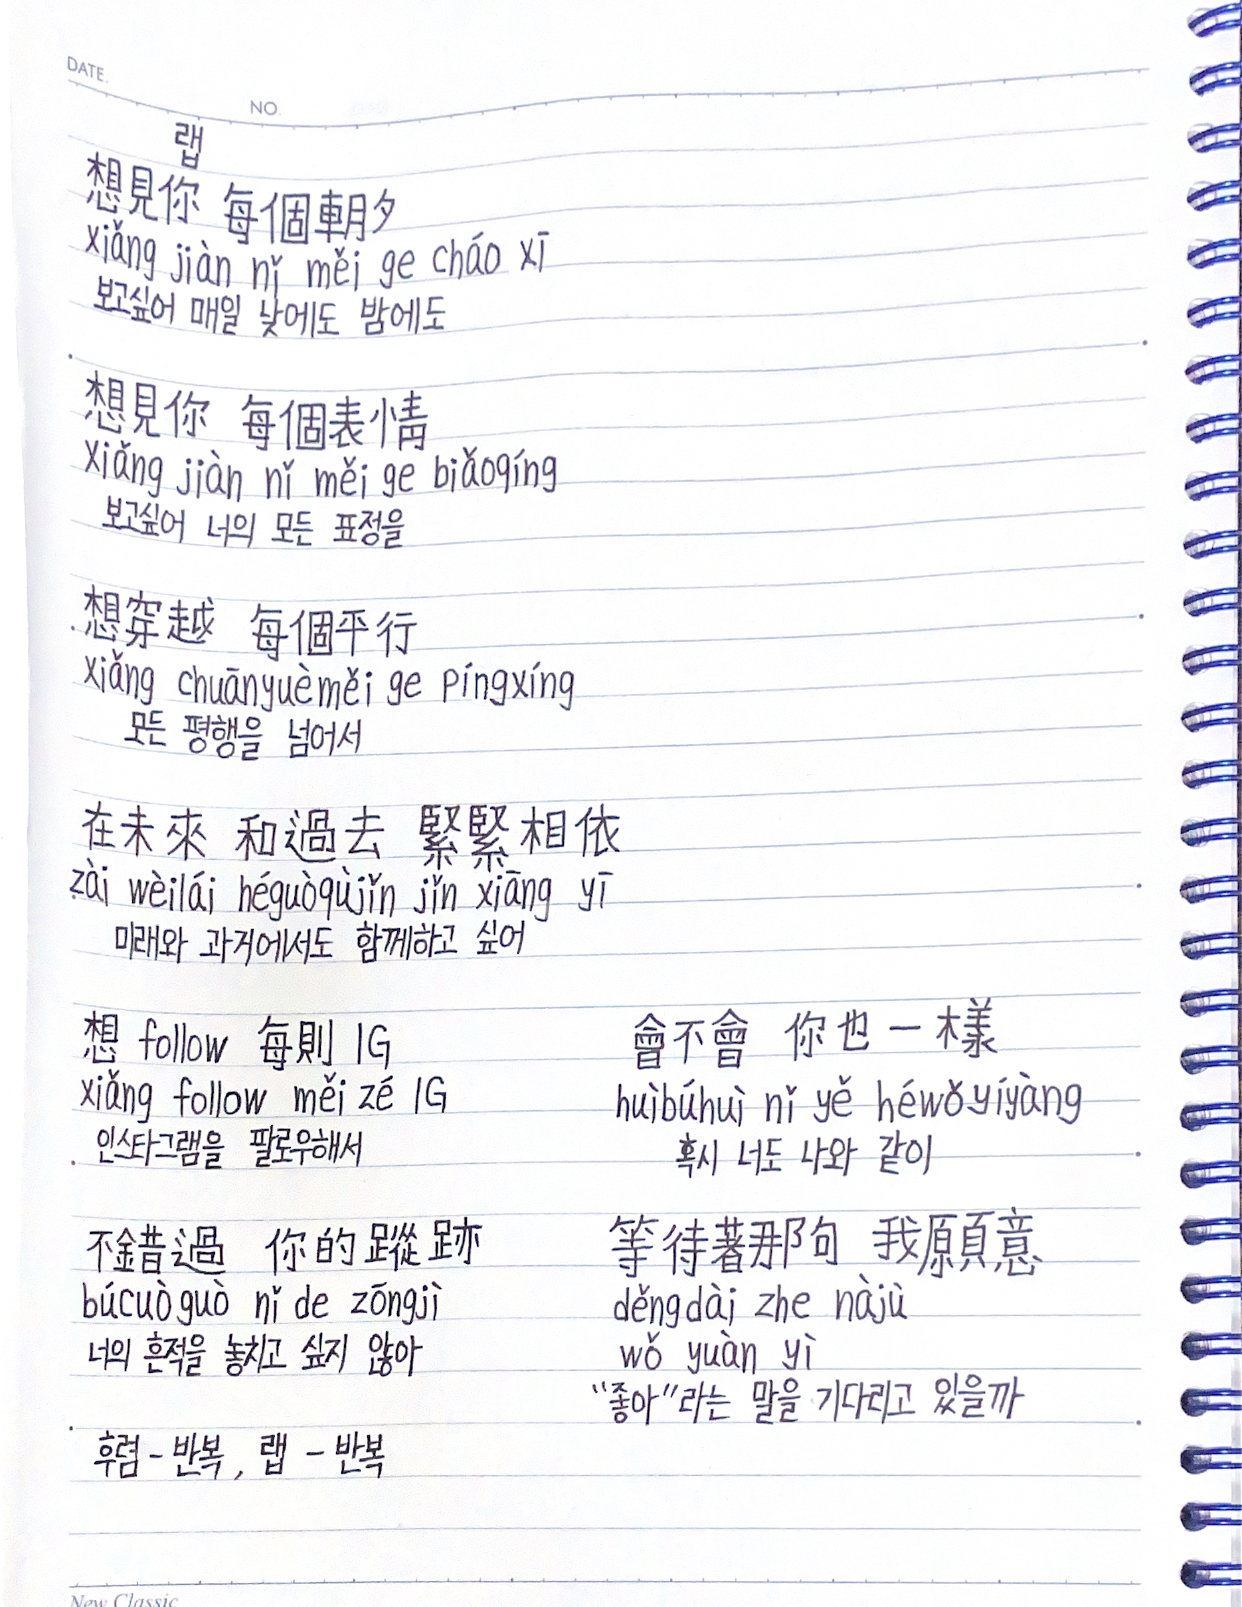 DATE.
NO.
랩
想見你 每個朝夕
xiǎng jiàn nǐ měi ge cháo xī
보고싶어 매일 낮에도 밤에도
想見你 每個表情
xiǎng jiàn nǐ měi ge biǎoqíng
보고싶어 너의 모든 표정을
想穿越 每個平行
xiǎng chuānyuè měi ge píngxíng
모든 평행을 넘어서
在未來 和過去 緊緊相依
zài wèilái héguòqùjǐn jǐn xiāng yī
미래와 과거에서도 함께하고 싶어
想 follow 每則 IG
xiǎng follow měi zé IG
인스타그램을 팔로우해서
不錯過 你的蹤跡
búcuòguò nǐ de zōngjì
너의 흔적을 놓치고 싶지 않아
會不會 你也一樣
huìbúhuì nǐ yě héwǒyíyàng
혹시 너도 나와 같이
等待著那句 我願意
děngdài zhe nàjù
wǒ yuàn yì
"좋아"라는 말을 기다리고 있을까
후렴 - 반복, 랩 - 반복
New Classic